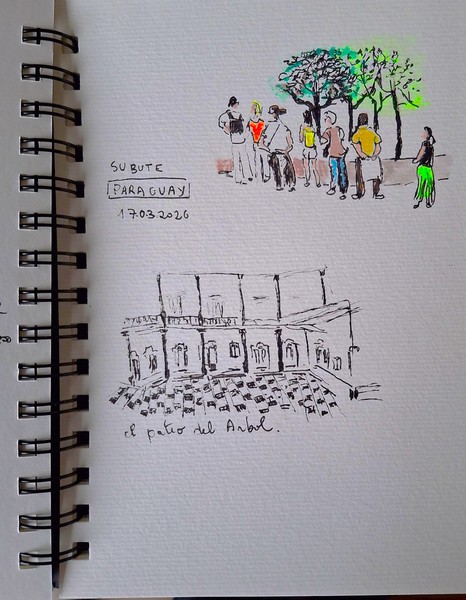 SUBUTE
PARAGUAY
17.03.2026
el patio del Arbol.